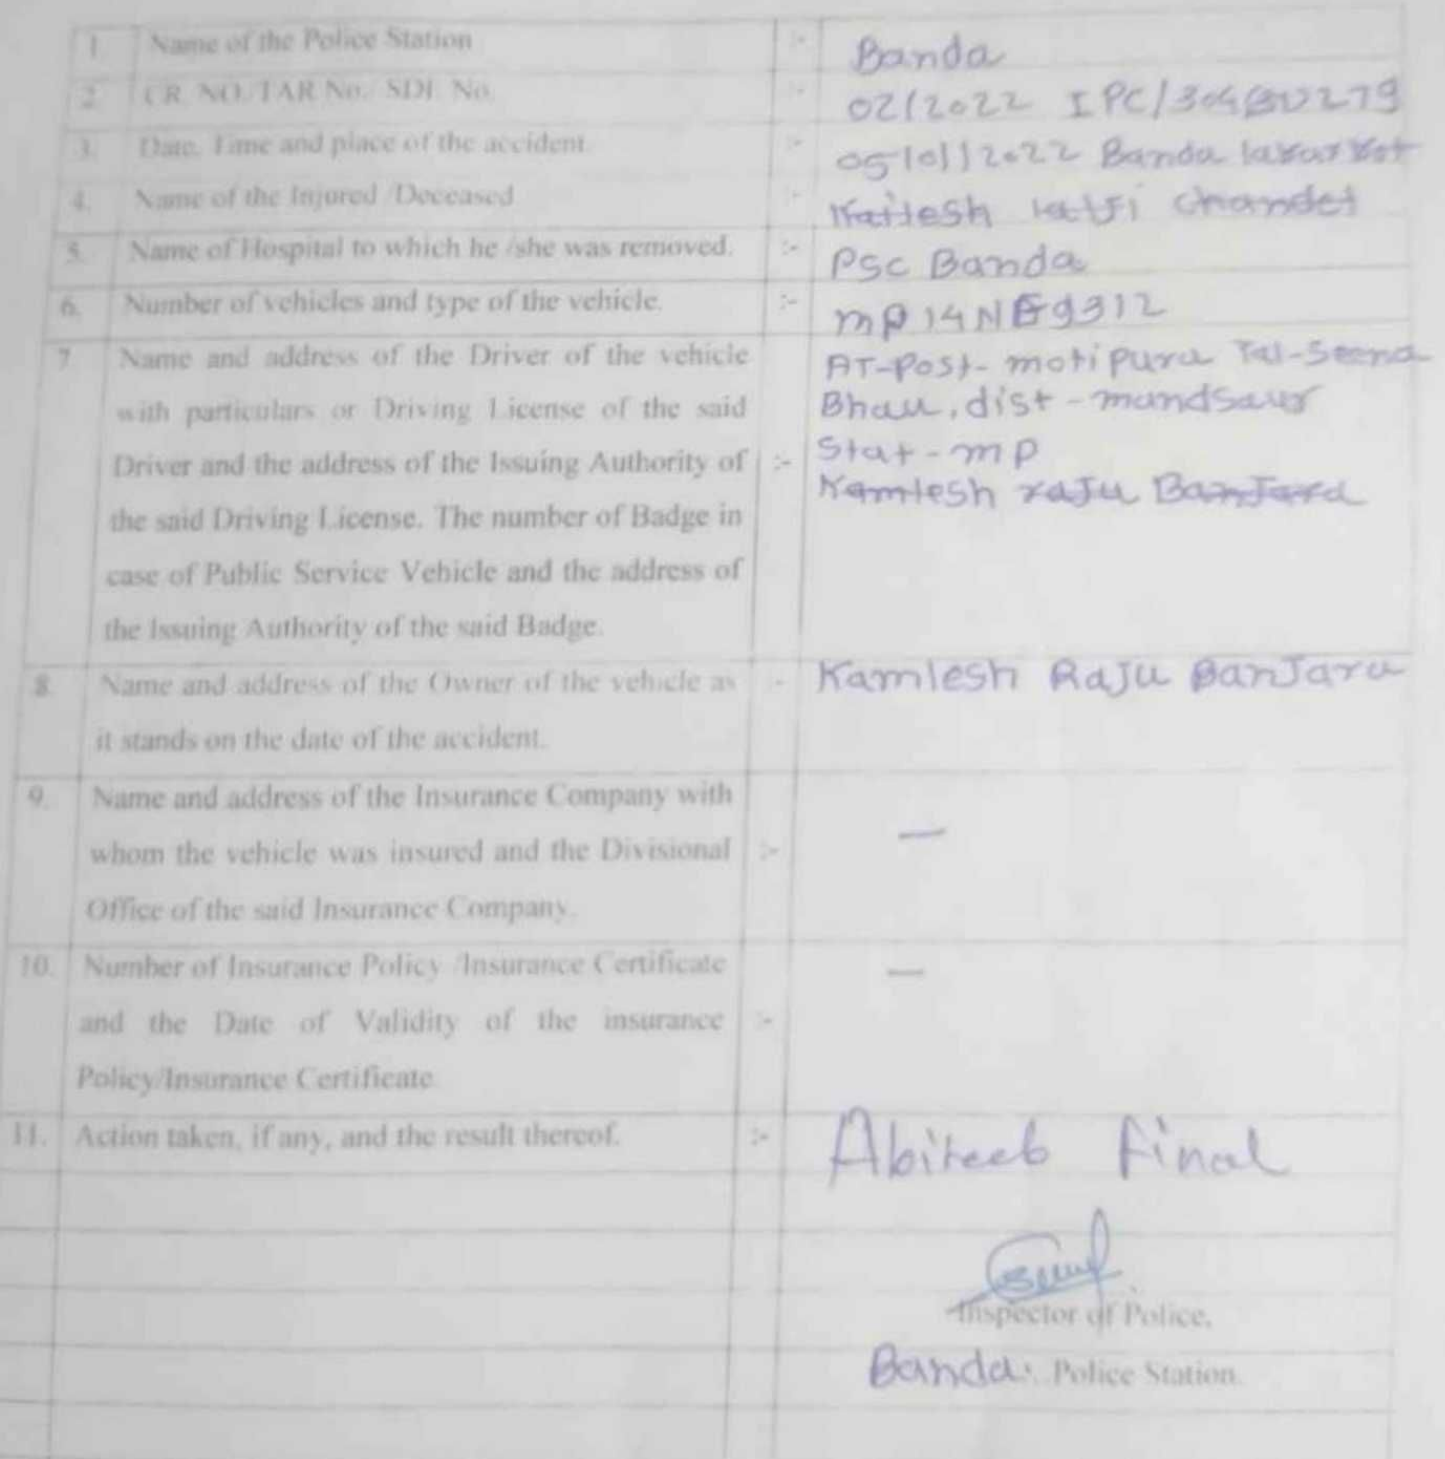 1. Name of the Police Station :- Banda
2. CR. NO./TAR No./ SDE No. :- 02/2022 IPC/304 279
3. Date, Time and place of the accident. :- 05/01/2022 Banda
4. Name of the Injured /Deceased :-
5. Name of Hospital to which he /she was removed. :- PSC Banda
6. Number of vehicles and type of the vehicle. :- MP 14 9312
7. Name and address of the Driver of the vehicle AT-Post- motipura Tal-
with particulars or Driving License of the said Bhau, dist - mandsaur
Driver and the address of the Issuing Authority of :- Stat - MP
the said Driving License. The number of Badge in Kamlesh raju Banjara
case of Public Service Vehicle and the address of
the Issuing Authority of the said Badge.
8. Name and address of the Owner of the vehicle as :- Kamlesh Raju BanJara
it stands on the date of the accident.
9. Name and address of the Insurance Company with —
whom the vehicle was insured and the Divisional :-
Office of the said Insurance Company.
10. Number of Insurance Policy /Insurance Certificate —
and the Date of Validity of the insurance :-
Policy/Insurance Certificate
11. Action taken, if any, and the result thereof. :- Final
Inspector of Police,
Banda Police Station.